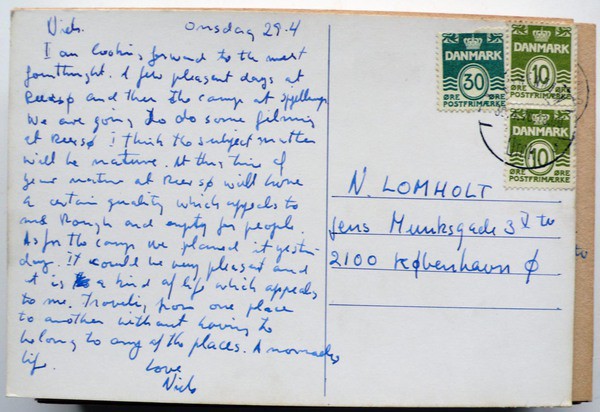 Niels. Onsdag 29.4
I am looking forward to the next
fourthnight. A few pleasant days at
Reersø and then the camp at
We are going to do some filming
at Reersø I think the subject matter
will be nature. At this time of
year nature at Reersø will have
a certain quality which appeals to
me Rough and empty for people.
As for the camp we planned it yester-
day. It could be very pleasant and
it is a kind of life which appeals
to me. Traveling from one place
to another without having to
belong to any of the places. A nomades
life.
Love
Niels
DANMARK
30
ØRE
POSTFRIMÆRKE
DANMARK
10
ØRE
POSTFRIMÆRKE
DANMARK
10
ØRE
POSTFRIMÆRKE
N. LOMHOLT
Jens Munksgade 3 tv
2100 København Ø